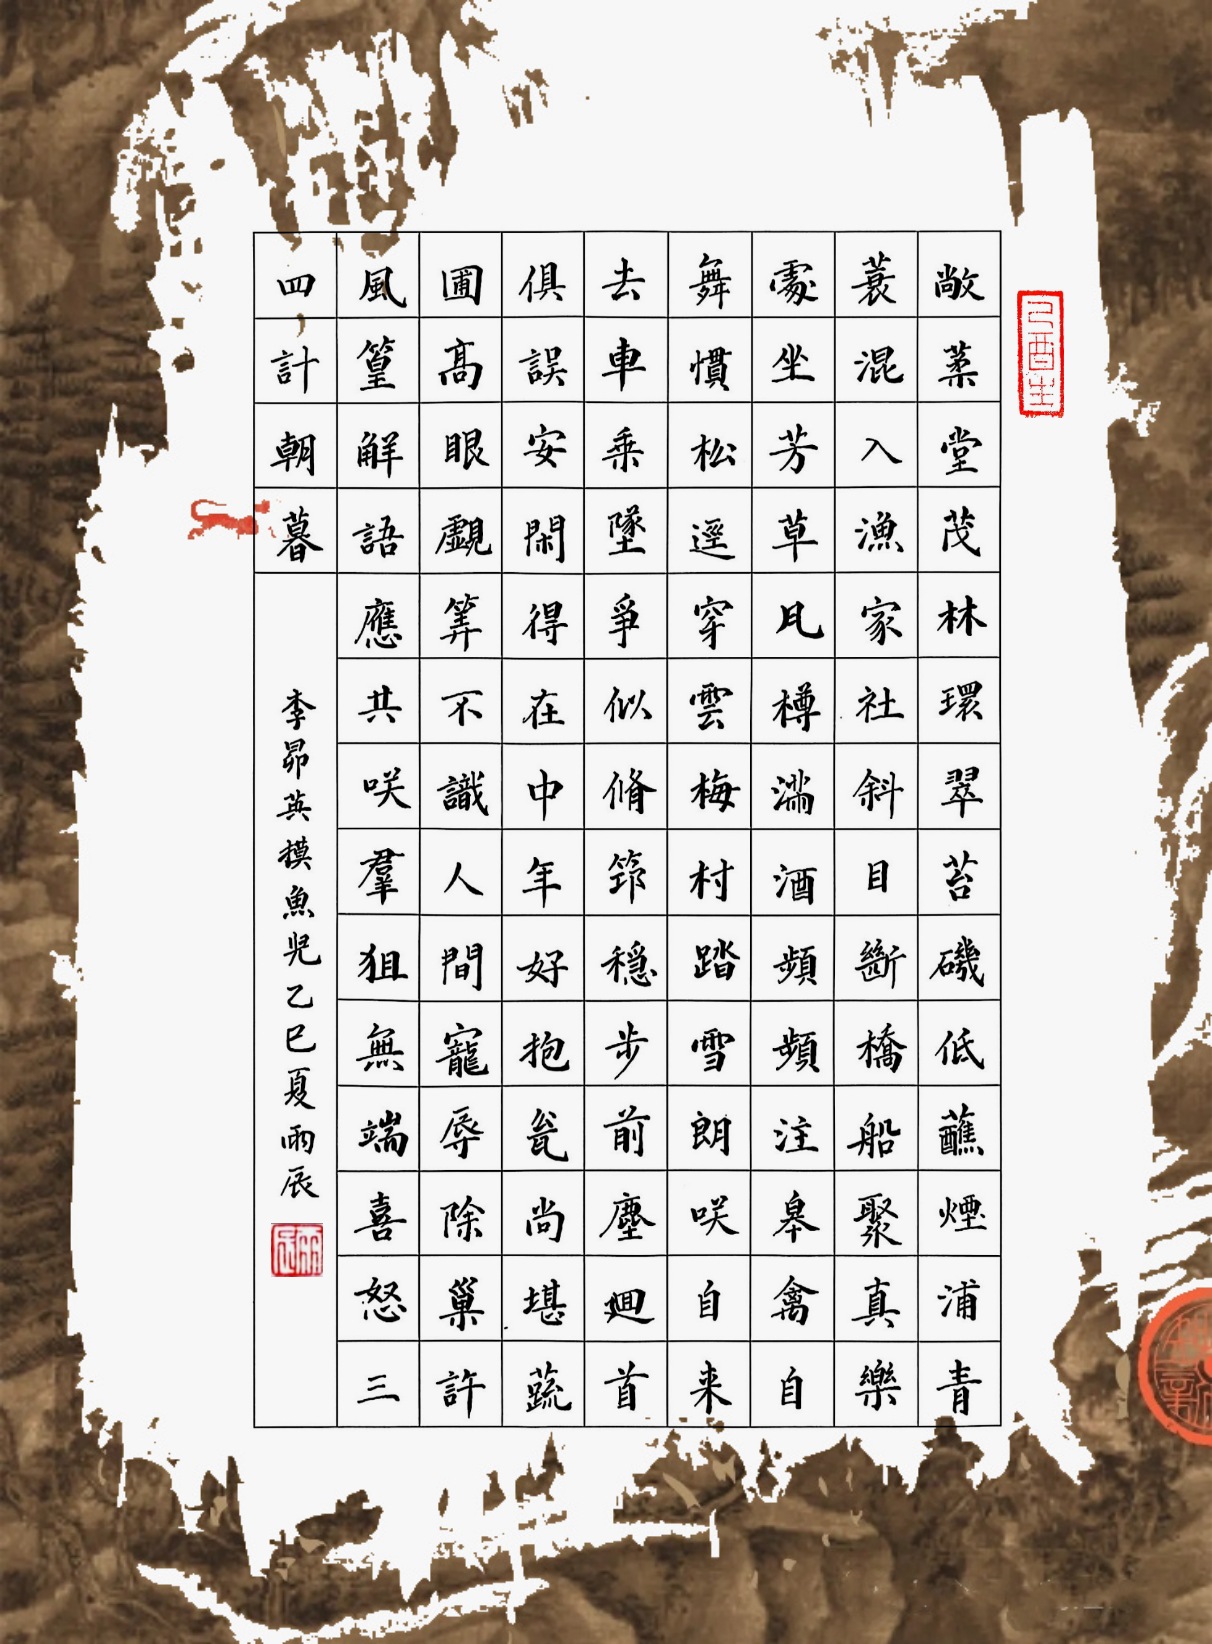 敞茅堂茂林環翠苔磯低蘸煙浦青
蓑混入漁家社斜目斷橋船聚真樂
處坐芳草凡樽滿酒頻頻注皋禽自
舞慣松逕穿雲梅村踏雪朗咲自来
去車乗墜爭似脩筇穩步前塵迴首
俱誤安閑得在中年好抱瓮尚堪蔬
圃高眼覷筭不識人間寵辱除巢許
風篁解語應共咲羣狙無端喜怒三
四計朝暮
李昴英摸魚児乙巳夏雨辰